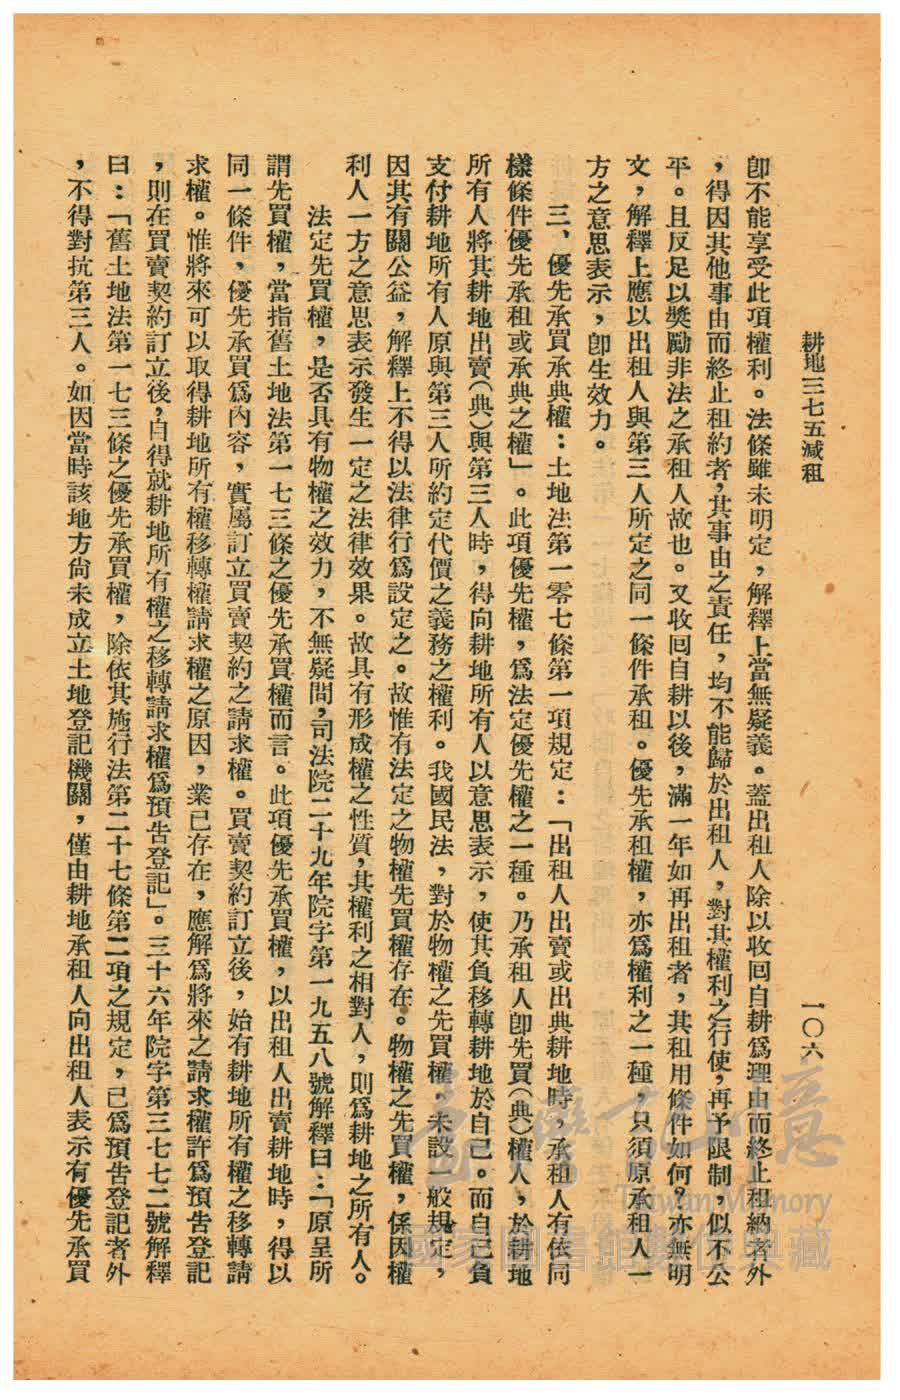 耕地三七五減租
一〇六
卽不能享受此項權利。法條雖未明定，解釋上當無疑義。蓋出租人除以收回自耕爲理由而終止租約者外
，得因其他事由而終止租約者，其事由之責任，均不能歸於出租人，對其權利之行使，再予限制，似不公
平。且反足以獎勵非法之承租人故也。又收回自耕以後，滿一年如再出租者，其租用條件如何？亦無明
文，解釋上應以出租人與第三人所定之同一條件承租。優先承租權，亦爲權利之一種，只須原承租人一
方之意思表示，卽生效力。
三、優先承買承典權：土地法第一零七條第一項規定：「出租人出賣或出典耕地時，承租人有依同
樣條件優先承租或承典之權」。此項優先權，爲法定優先權之一種。乃承租人卽先買（典）權人，於耕地
所有人將其耕地出賣（典）與第三人時，得向耕地所有人以意思表示，使其負移轉耕地於自己。而自己負
支付耕地所有人原與第三人所約定代價之義務之權利。我國民法，對於物權之先買權，未設一般規定，
因其有關公益，解釋上不得以法律行爲設定之。故惟有法定之物權先買權存在。物權之先買權，係因權
利人一方之意思表示發生一定之法律效果。故具有形成權之性質，其權利之相對人，則爲耕地之所有人。
法定先買權，是否具有物權之效力，不無疑問，司法院二十九年院字第一九五八號解釋曰：「原呈所
謂先買權，當指舊土地法第一七三條之優先承買權而言。此項優先承買權，以出租人出賣耕地時，得以
同一條件，優先承買爲內容，實屬訂立買賣契約之請求權。買賣契約訂立後，始有耕地所有權之移轉請
求權。惟將來可以取得耕地所有權移轉權請求權之原因，業已存在，應解爲將來之請求權許爲預告登記
，則在買賣契約訂立後，自得就耕地所有權之移轉請求權爲預告登記」。三十六年院字第三七七二號解釋
曰：「舊土地法第一七三條之優先承買權，除依其施行法第二十七條第二項之規定，已爲預告登記者外
，不得對抗第三人。如因當時該地方尙未成立土地登記機關，僅由耕地承租人向出租人表示有優先承買
臺灣記憶
Taiwan Memory
國家圖書館數位典藏